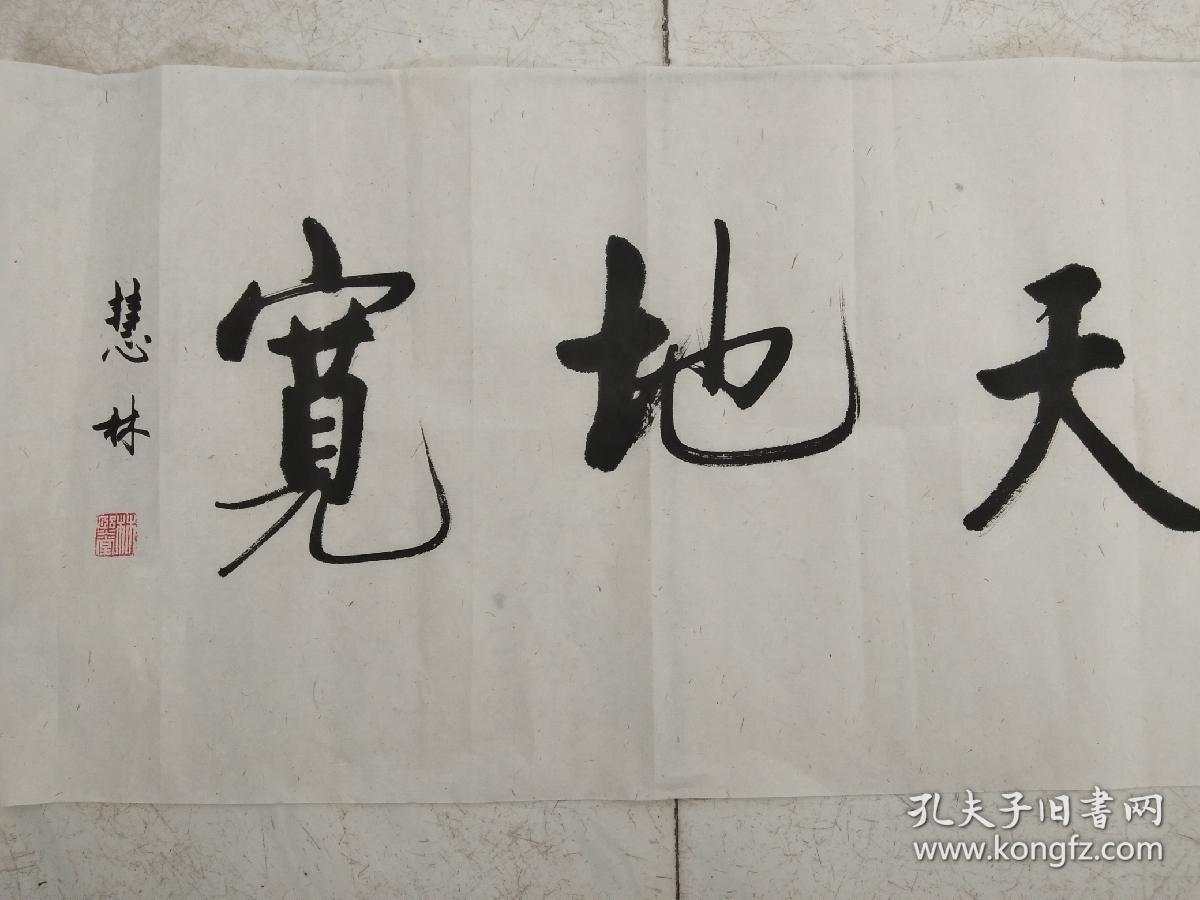 天地寬
慧林
孔夫子旧書网
www.kongfz.com